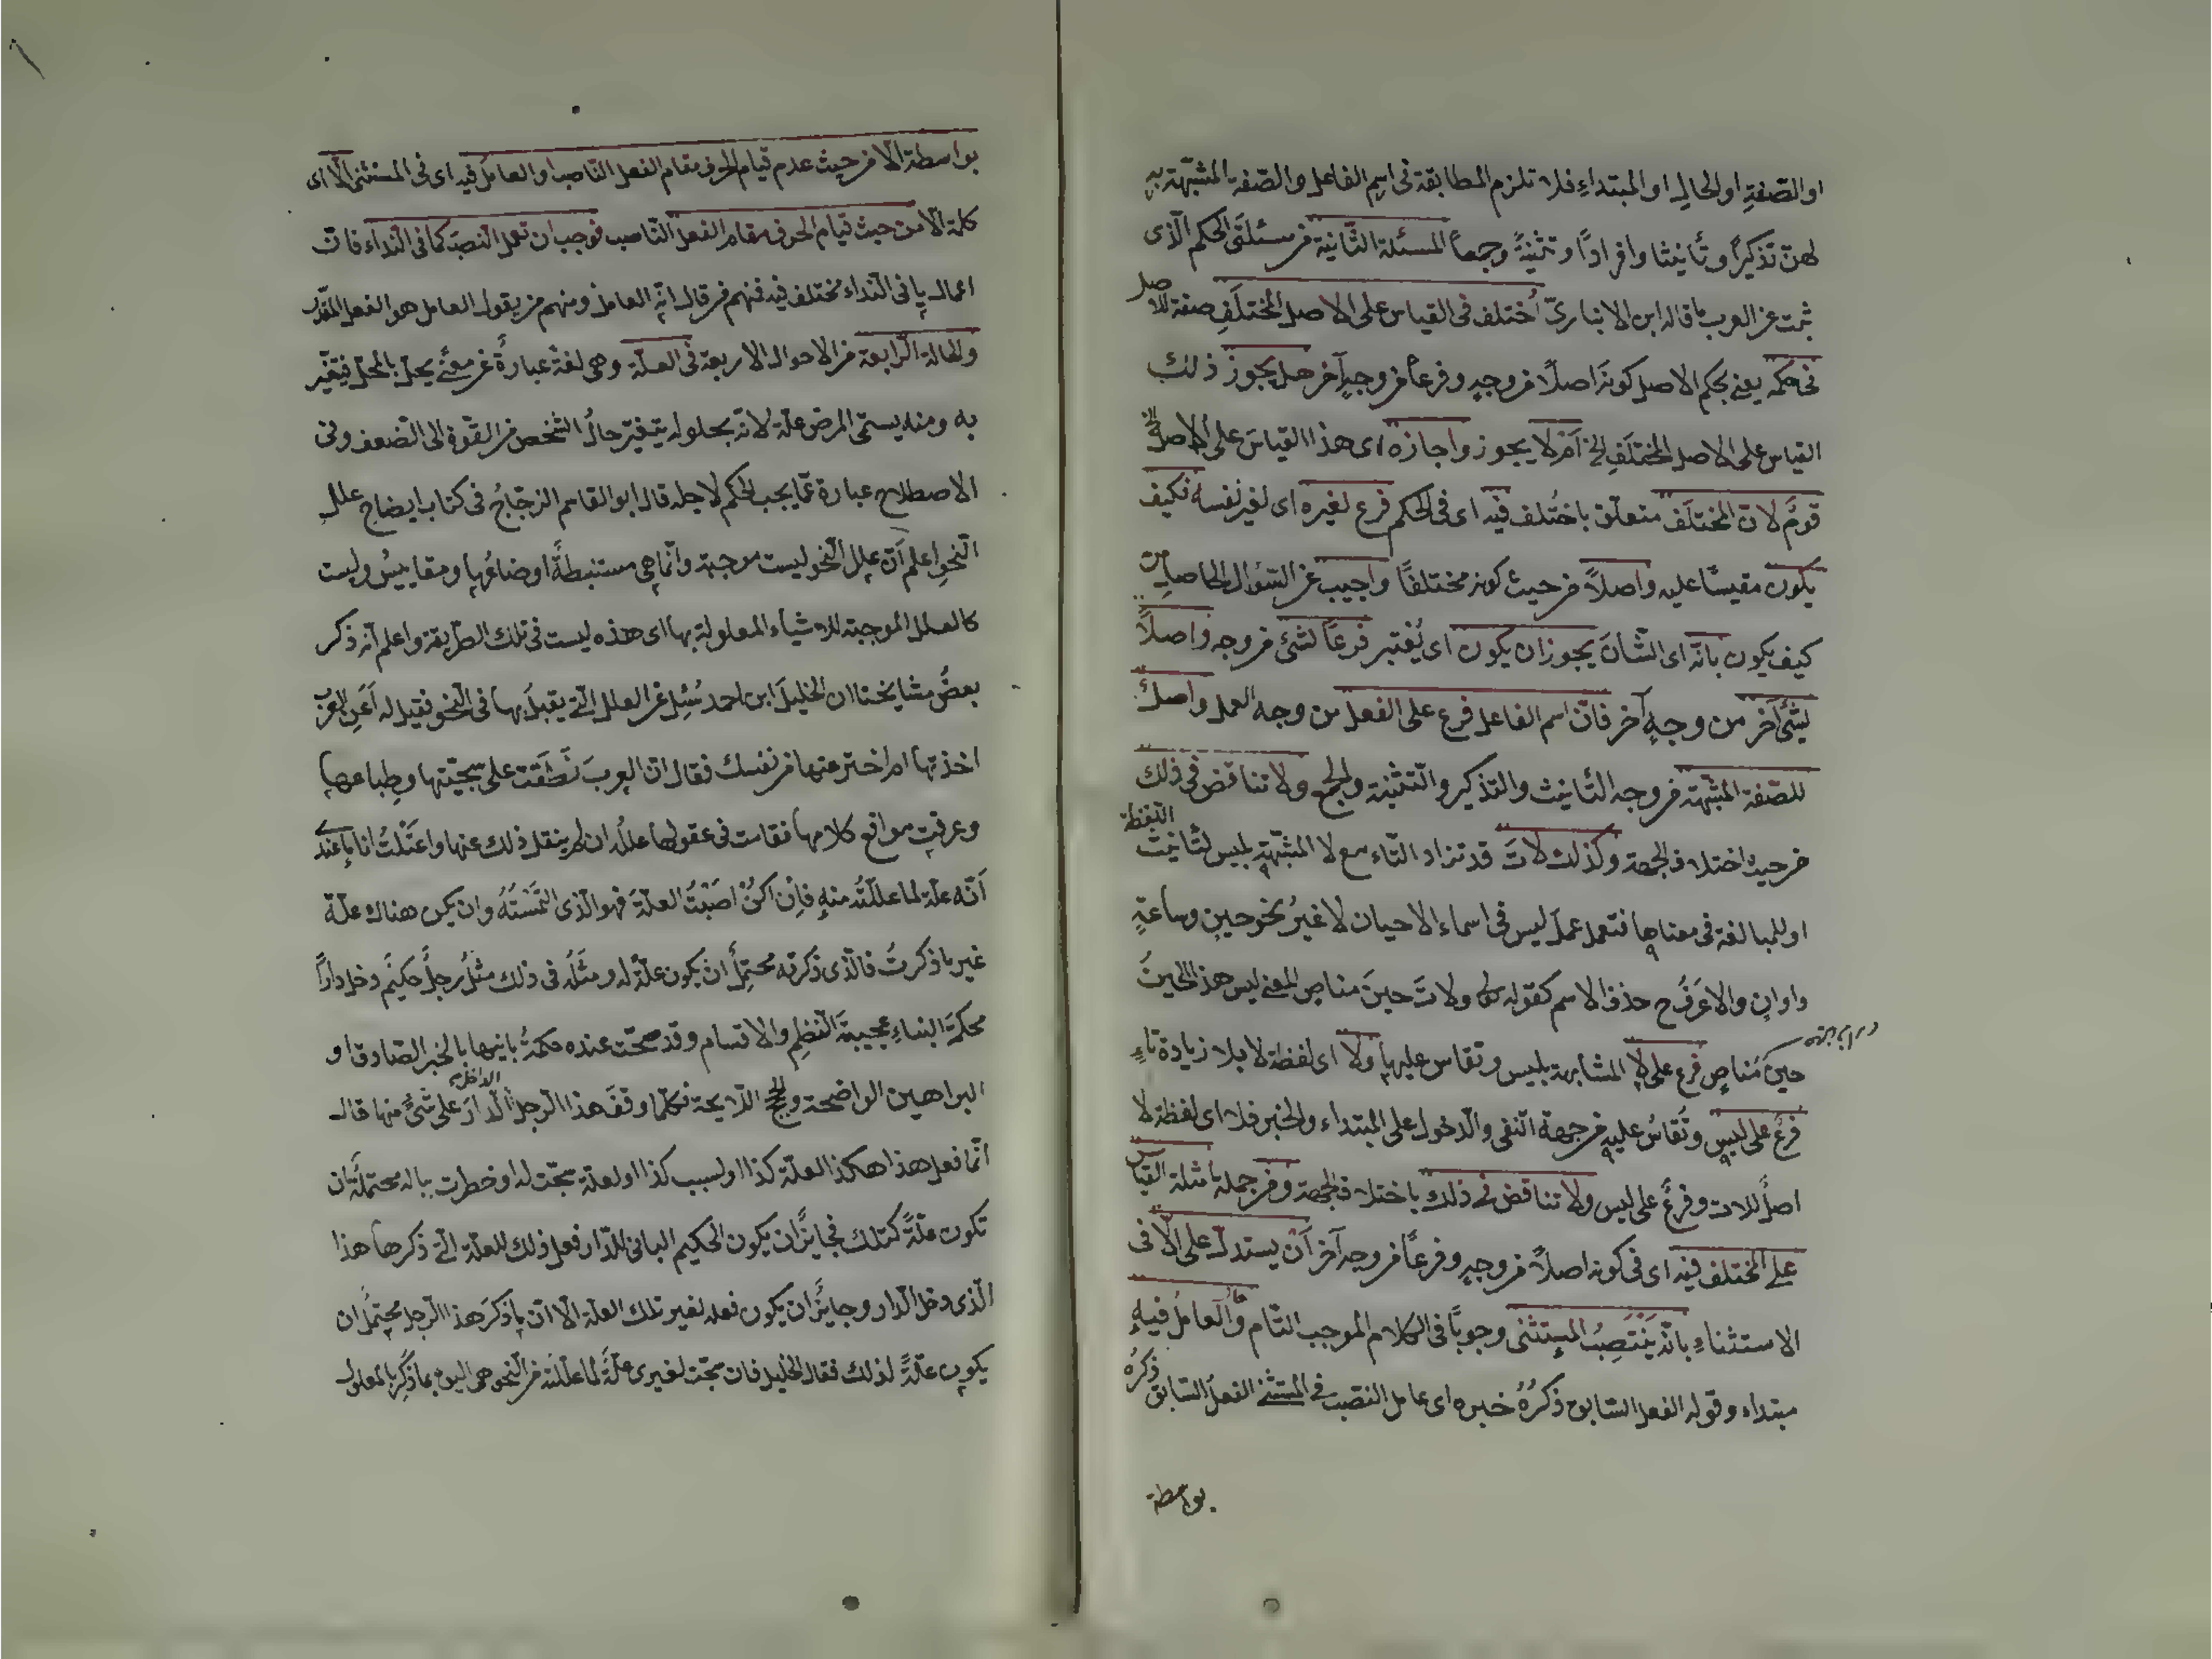 او الصّفةِ او الحالِ او المبتداءِ فلا تلزم المطابقة فى اسم الفاعل والصّفة المشبّهة به
لهنّ تذكيراً وتأنيثا وافرادًا وتثنيةً وجمعاً المسئلة الثّانية من مسئلتَى الحكم الّذى
ثبت عن العرب ما قاله ابن الانبارىّ اُختلف فى القياس على الاصل المختلَفِ صفة للاصل
فى حكمه يعنى بحكم الاصل كونَه اصلاً من وجهٍ وفرعاً من وجهٍ آخر هل يجوز ذلك
القياس على الاصل المختلَفِ الخ اَمْ لا يجوز واجازه اى هذا القياسَ على الاصل الخ
قومٌ لانّ المختلَف متعلّق باختُلف فيه اى فى الحكم فرع لغيره اى لغير نفسه فكيف
يكون مقيسًا عليه واصلاً من حيث كونه مختلفًا واجيب عن السّؤال الحاصل من
كيف يكون بانّه اى الشّانَ يجوز ان يكون اى يُعْتبر فرعًا لشئٍ من وجه واصلاً
لشئٍ آخرَ من وجهٍ آخر فانّ اسم الفاعل فرع على الفعل من وجه العمل واصلٌ
للصّفة المشبّهة من وجه التّانيث والتذكير والتّثنية والجمع ولا تناقض فى ذلك
من حيث اختلاف الجهة وكذلك لاتَ قد تزاد التّاء مع لا المشبّهةِ بليس لتانيث اللّفظة
او للمبالغة فى معناها فتعمل عملَ ليس فى اسماء الاحيان لا غيرُ نحو حينٍ وساعةٍ
واوانٍ والاعرَفُ ح حذف الاسم كقوله تعالى ولاتَ حينَ مناصٍ المعنى ليس هذا الحينُ
حينَ مَناصٍ فرع على لا المشابهة بليس وتقاس عليها ولا اى لفظة لا بلا زيادة تاءٍ
فرعٌ على ليس وتُقاسُ عليه من جهة النّفى والدّخول على المبتداء والخبر فلا اى لفظة لا
اصلٌ للات وفرعٌ على ليس ولا تناقض فى ذلك باختلاف الجهة ومن جملة امثلة القياس
على المختلف فيه اى فى كونه اصلاً من وجهٍ وفرعًا من وجه آخر اَنْ يستدلّ على الّا فى
الاستثناءِ بانّه يَنْتَصِبُ المستثنى وجوبًا فى الكلام الموجب التّام والعاملُ فيهِ
مبتداء وقوله الفعل السّابق ذكرُهُ خبره اى عامل النّصبِ فى المستثنى الفعلُ السّابق ذكرُهُ
بواسطة
بواسطة الّا من حيث عدم قيام الحرف مقام الفعل النّاصب او العاملُ فيه اى فى المستثنى الّا اى
كلمة الّا من حيث قيام الحرف مقام الفعل النّاصب فوجب ان تعمل النصبَ كما فى النداء فانّ
اعمال يا فى النّداء مختلف فيه فمنهم من قال انّه العامل ومنهم من يقول العامل هو الفعل المقدّر
والحالة الرّابعة من الاحوال الاربعة فى العلّة وهى لغةً عبارةٌ عن معنًى يحلّ بالمحلّ فيتغيّر
به ومنه يسمّى المرض علّة لانّه بحلوله يتغيّر حالُ الشّخص من القوّة الى الضّعف وفى
الاصطلاح عبارة عمّا يجب الحكم لاجله قال ابو القاسم الزجّاجُ فى كتاب ايضاح علل
النّحوِ اعلم اَنّ عِلل النّحو ليست موجبة وانّما هى مستنبطةٌ اوضاعُها ومقاييسُ وليست
كالعلل الموجبة للاشياء المعلولة بها اى هذه ليست فى تلك الطّريقة واعلم انّه ذكر
بعضُ مشايخنا ان الخليلَ ابن احمد سُئِل عن العلل الّتى يقبلُ بها فى النّحو فقيل له اَعَنِ العربِ
اخذتها ام اخترعتها من نفسك فقال انّ العربَ نَطَقَت على سجيّتها وطِباعها
وعرفت مواقع كلامها فقامت فى عقولها علله وان لم ينقل ذلك عنها واعتَلَلْتُ انا بما عندى
اَنّه علّة لما علّلتُه منه فاِن اكُنْ اصَبْتُ العلّةَ فهو الّذى التَمَسْتُهُ وان يكن هناك علّة
غير ما ذكرتُ فالّذى ذكرتُه محتمِلٌ انْ يكون علّةً له ومثَلُه فى ذلك مثلُ رجلٌ حكيمٌ دخل دارًا
محكمَةَ البناءِ عجيبةَ النّظمِ والاقسام وقد صحّت عنده حكمةُ بانيها بالخبر الصّادق او
البراهين الواضحة والحجج اللّايحة فكلّما وقفَ هذا الرّجل الدّاخل الدّارَ على شئٍ منها قال
انّما فعل هذا هكذا لعلّة كذا او لسبب كذا او لعلة سنحت له او خطرت بباله محتملَةٌ ان
تكون علّةً كتلك فجايزٌ ان يكون الحكيم البانى للدّار فعل ذلك للعلّة الّتى ذكرها هذا
الّذى دخل الدّار وجايزٌ ان يكون فعله لغير تلك العلّة الّا انّ ما ذكرَ هذا الرّجل محتملٌ ان
يكون علّةً لذلك فقال الخليل فان سنحت لغيرى علّةٌ لما علّلته من النّحو هى اليق بما ذُكِرَ بالمعلول